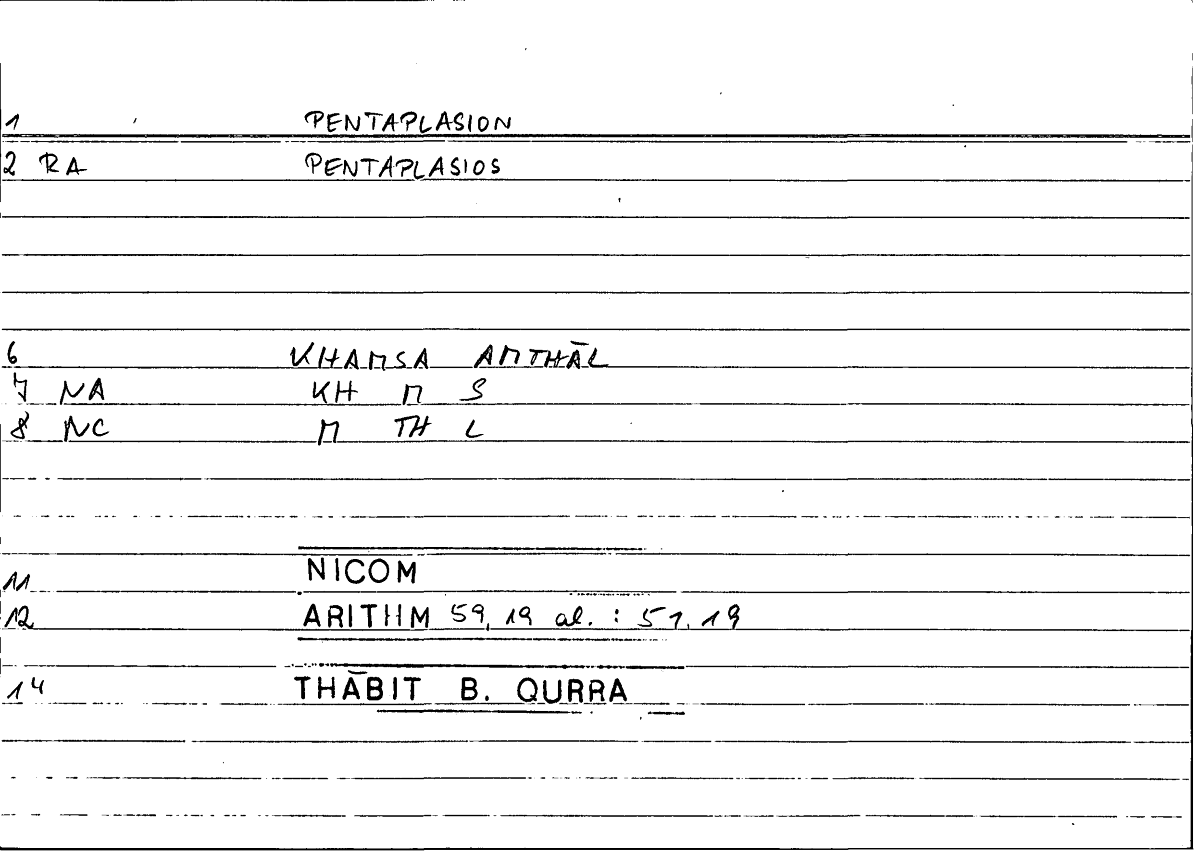 1 PENTAPLASION
2 RA PENTAPLASIOS
6 KHAMSA AMTHĀL
7 NA KH M S
8 NC M TH L
11 NICOM
12 ARITHM 59,19 al. : 51,19
14 THĀBIT B. QURRA